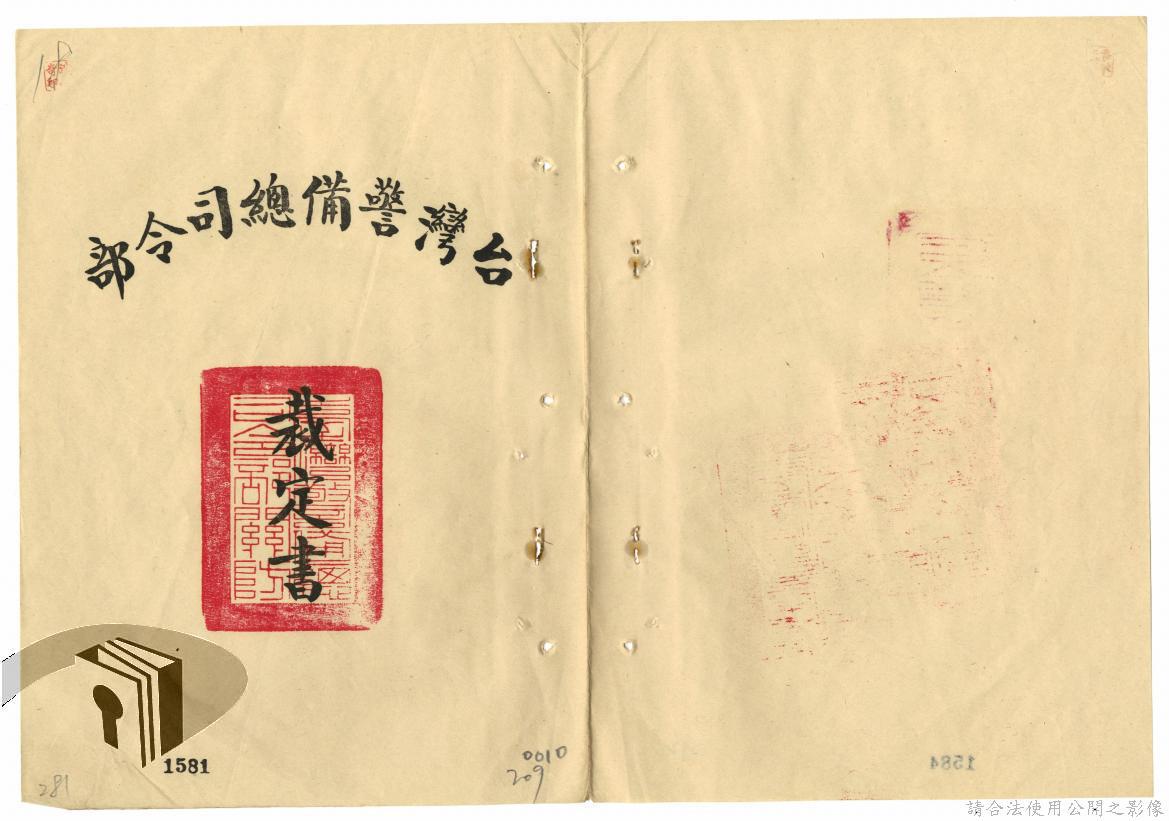 台灣警備總司令部
裁定書
1581
281
0010
209
1584
請合法使用公開之影像